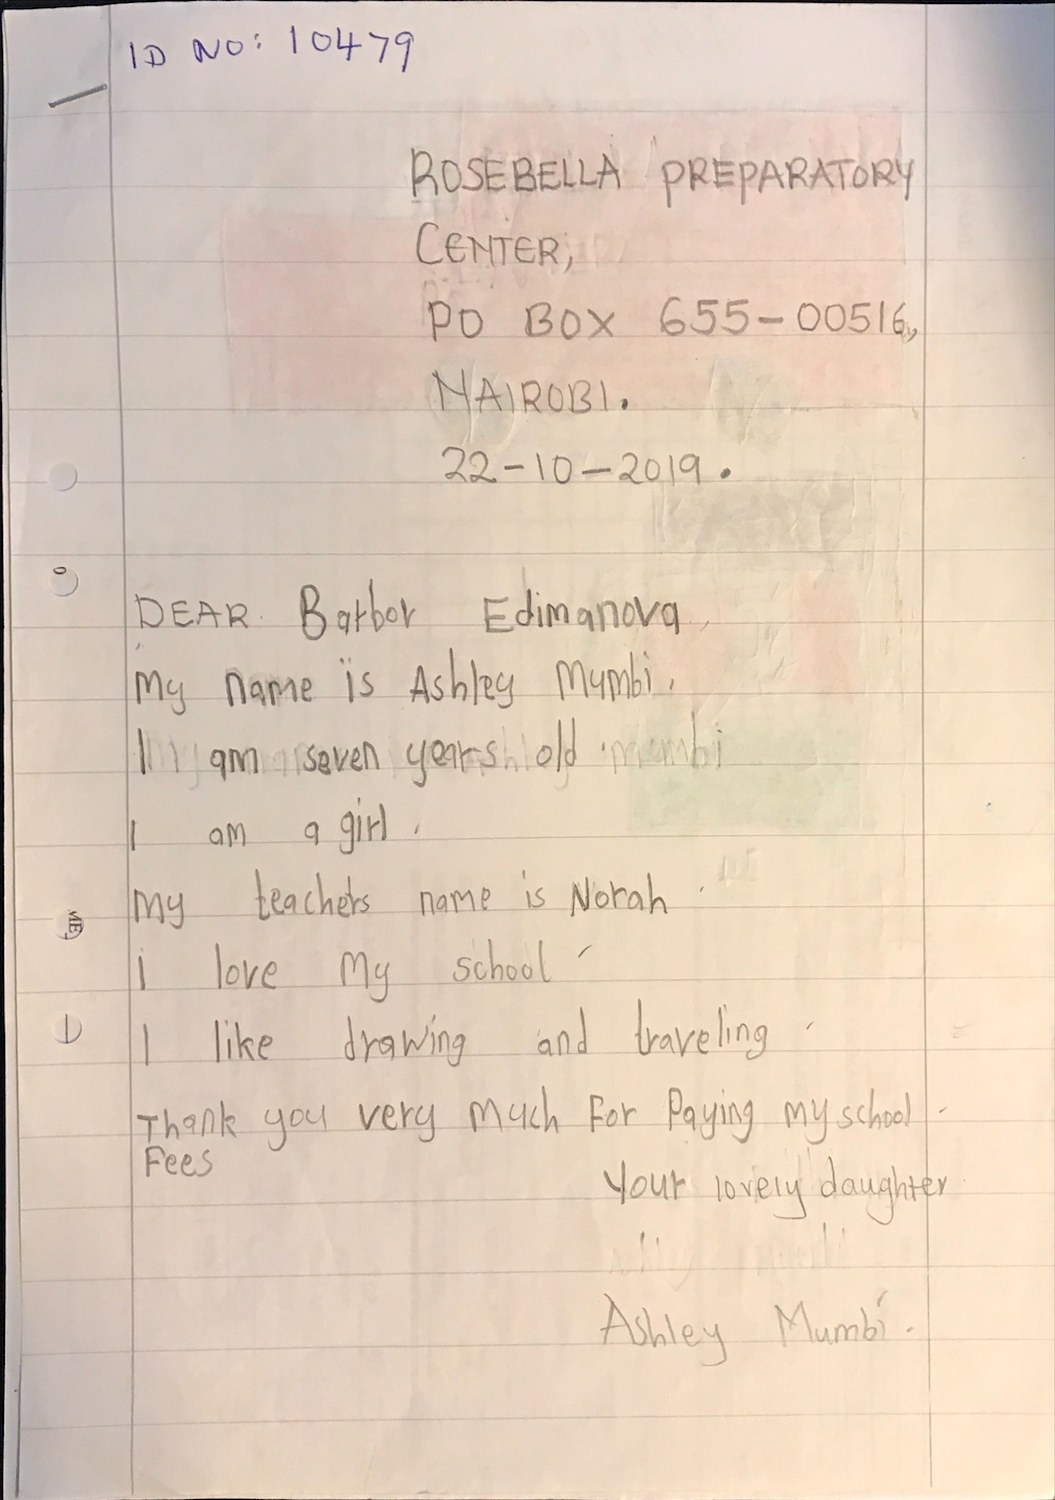 ID NO: 10479
ROSEBELLA PREPARATORY
CENTER,
PO BOX 655-00516,
NAIROBI.
22-10-2019.
DEAR Barbor Edimanova
My name is Ashley Mumbi.
I am seven years old.
I am a girl.
My teachers name is Norah.
i love My school
I like drawing and traveling.
Thank you very much For Paying my school.
Fees
your lovely daughter
Ashley Mumbi.